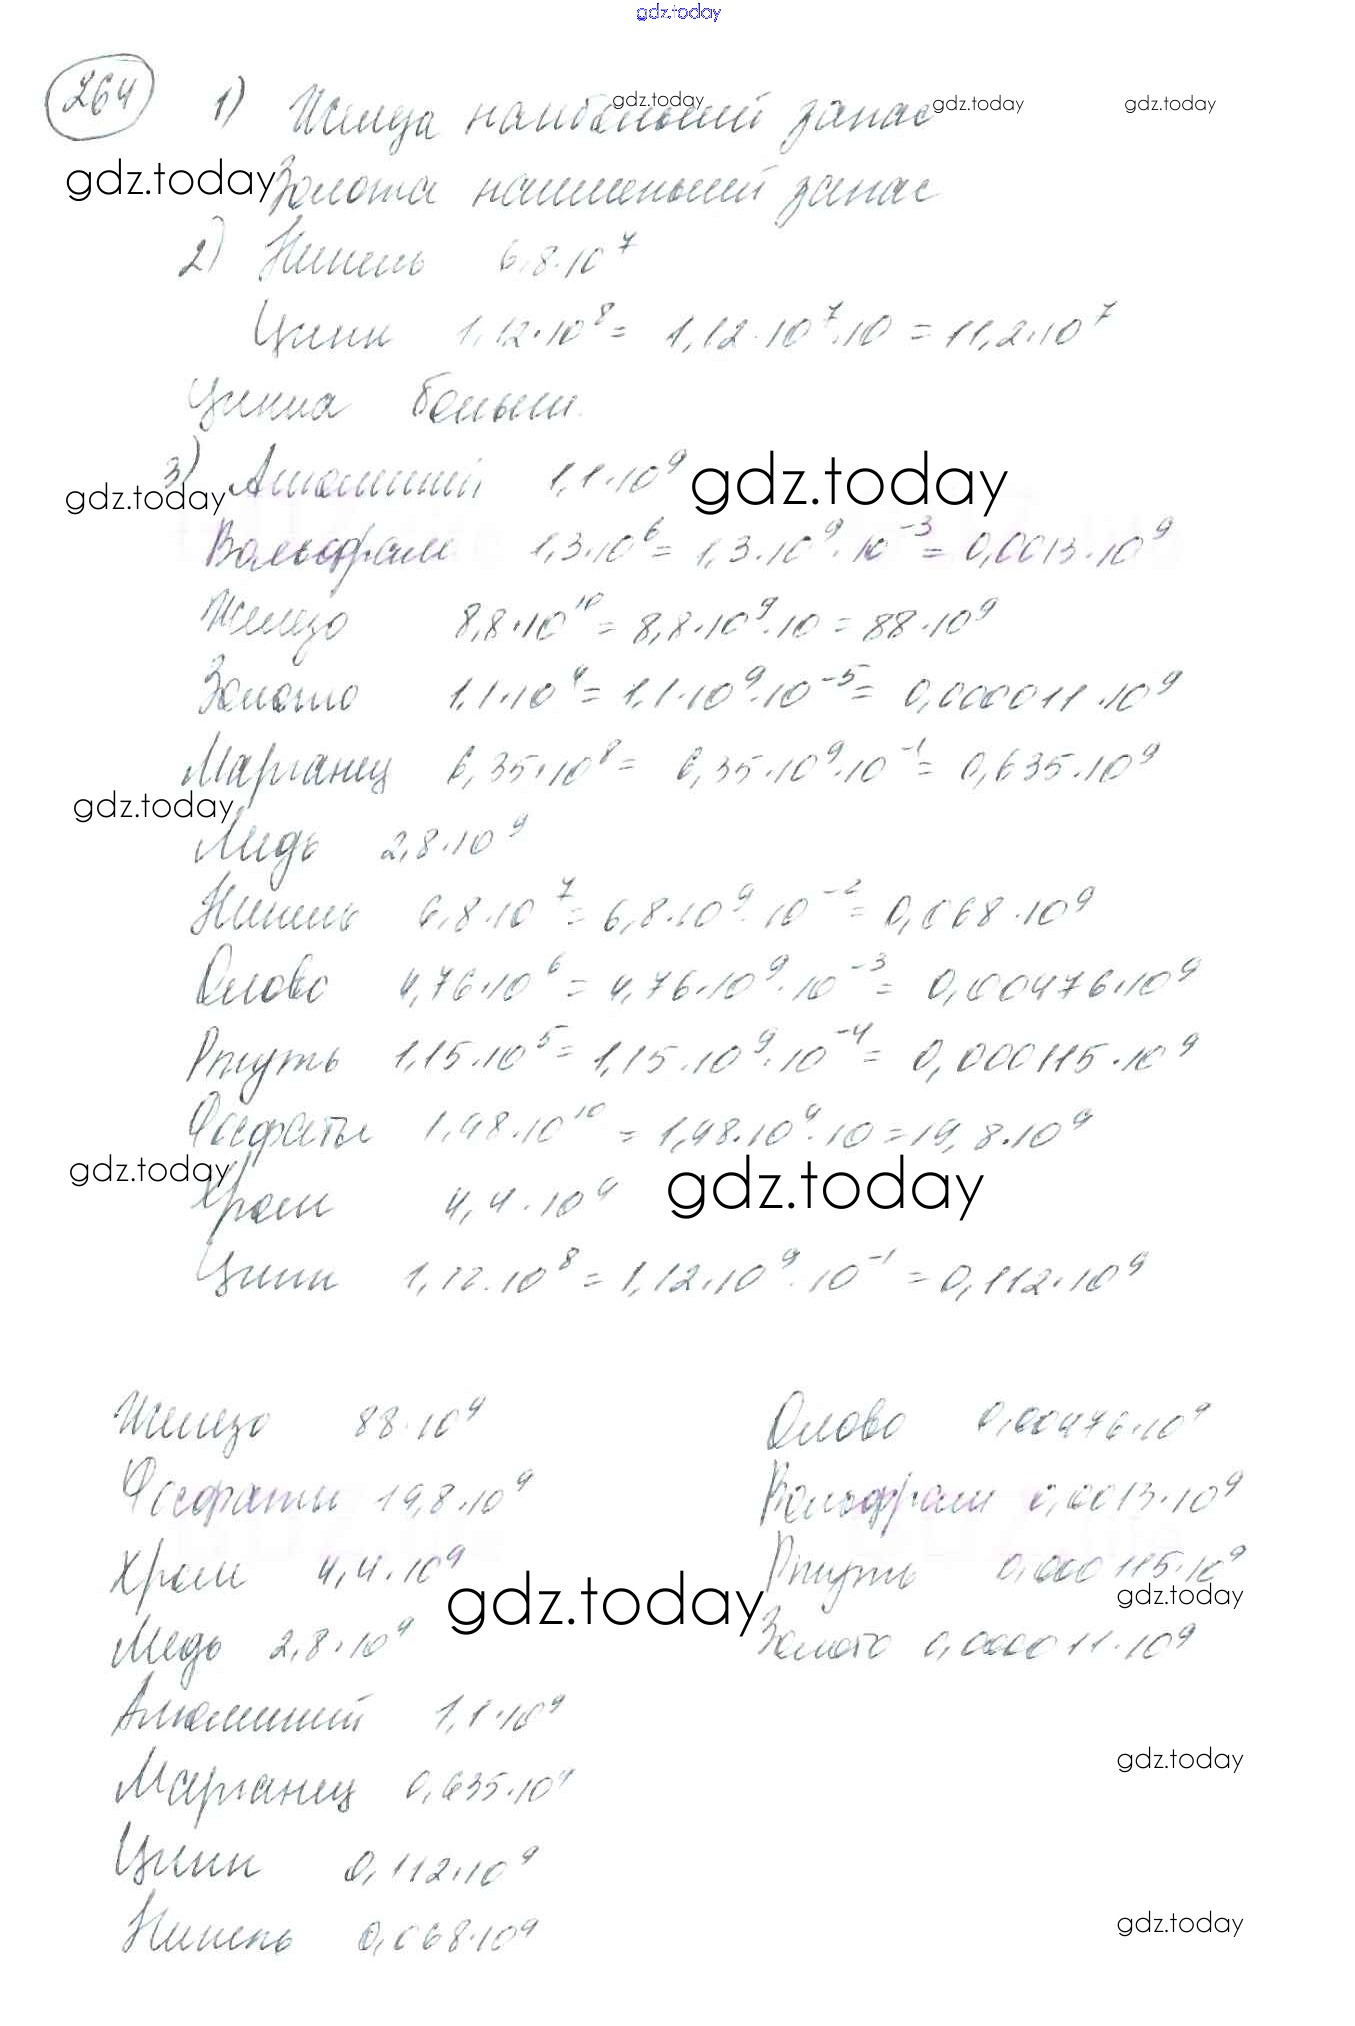 gdz.today
264 1) Железа наибольший запас
gdz.today gdz.today gdz.today
gdz.today
Золота наименьший запас
2) Никель 6,8·10⁷
Цинк 1,12·10⁸ = 1,12·10⁷·10 = 11,2·10⁷
Цинка больше.
3) Алюминий 1,1·10⁹
gdz.today gdz.today
Вольфрам 1,3·10⁶ = 1,3·10⁹·10⁻³ = 0,0013·10⁹
Железо 8,8·10¹⁰ = 8,8·10⁹·10 = 88·10⁹
Золото 1,1·10⁴ = 1,1·10⁹·10⁻⁵ = 0,000011·10⁹
Марганец 6,35·10⁸ = 6,35·10⁹·10⁻¹ = 0,635·10⁹
gdz.today
Медь 2,8·10⁹
Никель 6,8·10⁷ = 6,8·10⁹·10⁻² = 0,068·10⁹
Олово 4,76·10⁶ = 4,76·10⁹·10⁻³ = 0,00476·10⁹
Ртуть 1,15·10⁵ = 1,15·10⁹·10⁻⁴ = 0,000115·10⁹
Фосфаты 1,98·10¹⁰ = 1,98·10⁹·10 = 19,8·10⁹
gdz.today gdz.today
Хром 4,4·10⁹
Цинк 1,12·10⁸ = 1,12·10⁹·10⁻¹ = 0,112·10⁹
Железо 88·10⁹
Фосфаты 19,8·10⁹
Хром 4,4·10⁹
gdz.today
Медь 2,8·10⁹
Алюминий 1,1·10⁹
Марганец 0,635·10⁹
Цинк 0,112·10⁹
Никель 0,068·10⁹
Олово 0,00476·10⁹
Вольфрам 0,0013·10⁹
Ртуть 0,000115·10⁹
gdz.today
Золото 0,000011·10⁹
gdz.today
gdz.today